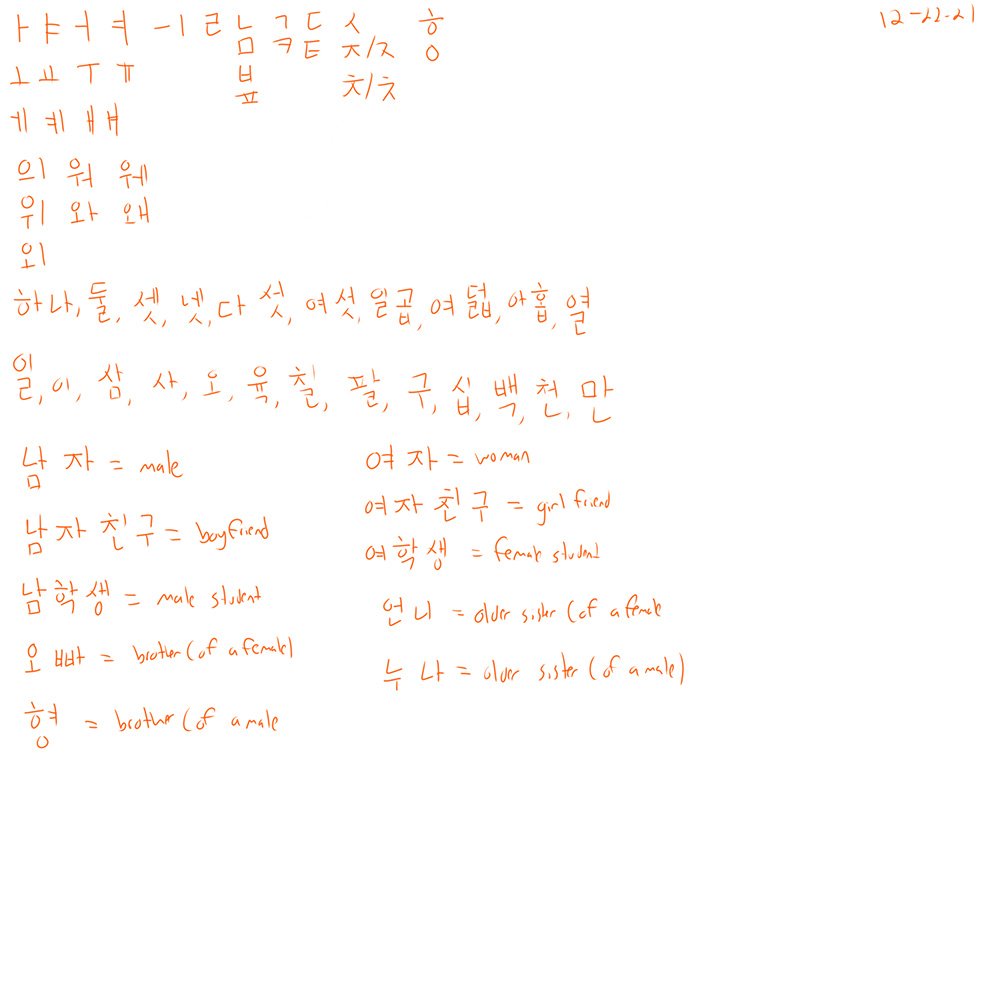 ㅏ ㅑ ㅓ ㅕ ㅡ ㅣ ㄹ ㄴ ㄱ ㄷ ㅅ ㅎ 12-22-21
ㅁ ㅋ ㅌ ㅈ/ㅈ ㅇ
ㅗ ㅛ ㅜ ㅠ ㅂ ㅊ/ㅊ
ㅍ
ㅔ ㅖ ㅐ ㅒ
의 워 웨
위 와 왜
외
하나, 둘, 셋, 넷, 다섯, 여섯, 일곱, 여덟, 아홉, 열
일, 이, 삼, 사, 오, 육, 칠, 팔, 구, 십, 백, 천, 만
남자 = male 여자 = woman
남자친구 = boyfriend 여자친구 = girlfriend
남학생 = male student 여학생 = female student
오빠 = brother (of a female) 언니 = older sister (of a female
형 = brother (of a male 누나 = older sister (of a male)